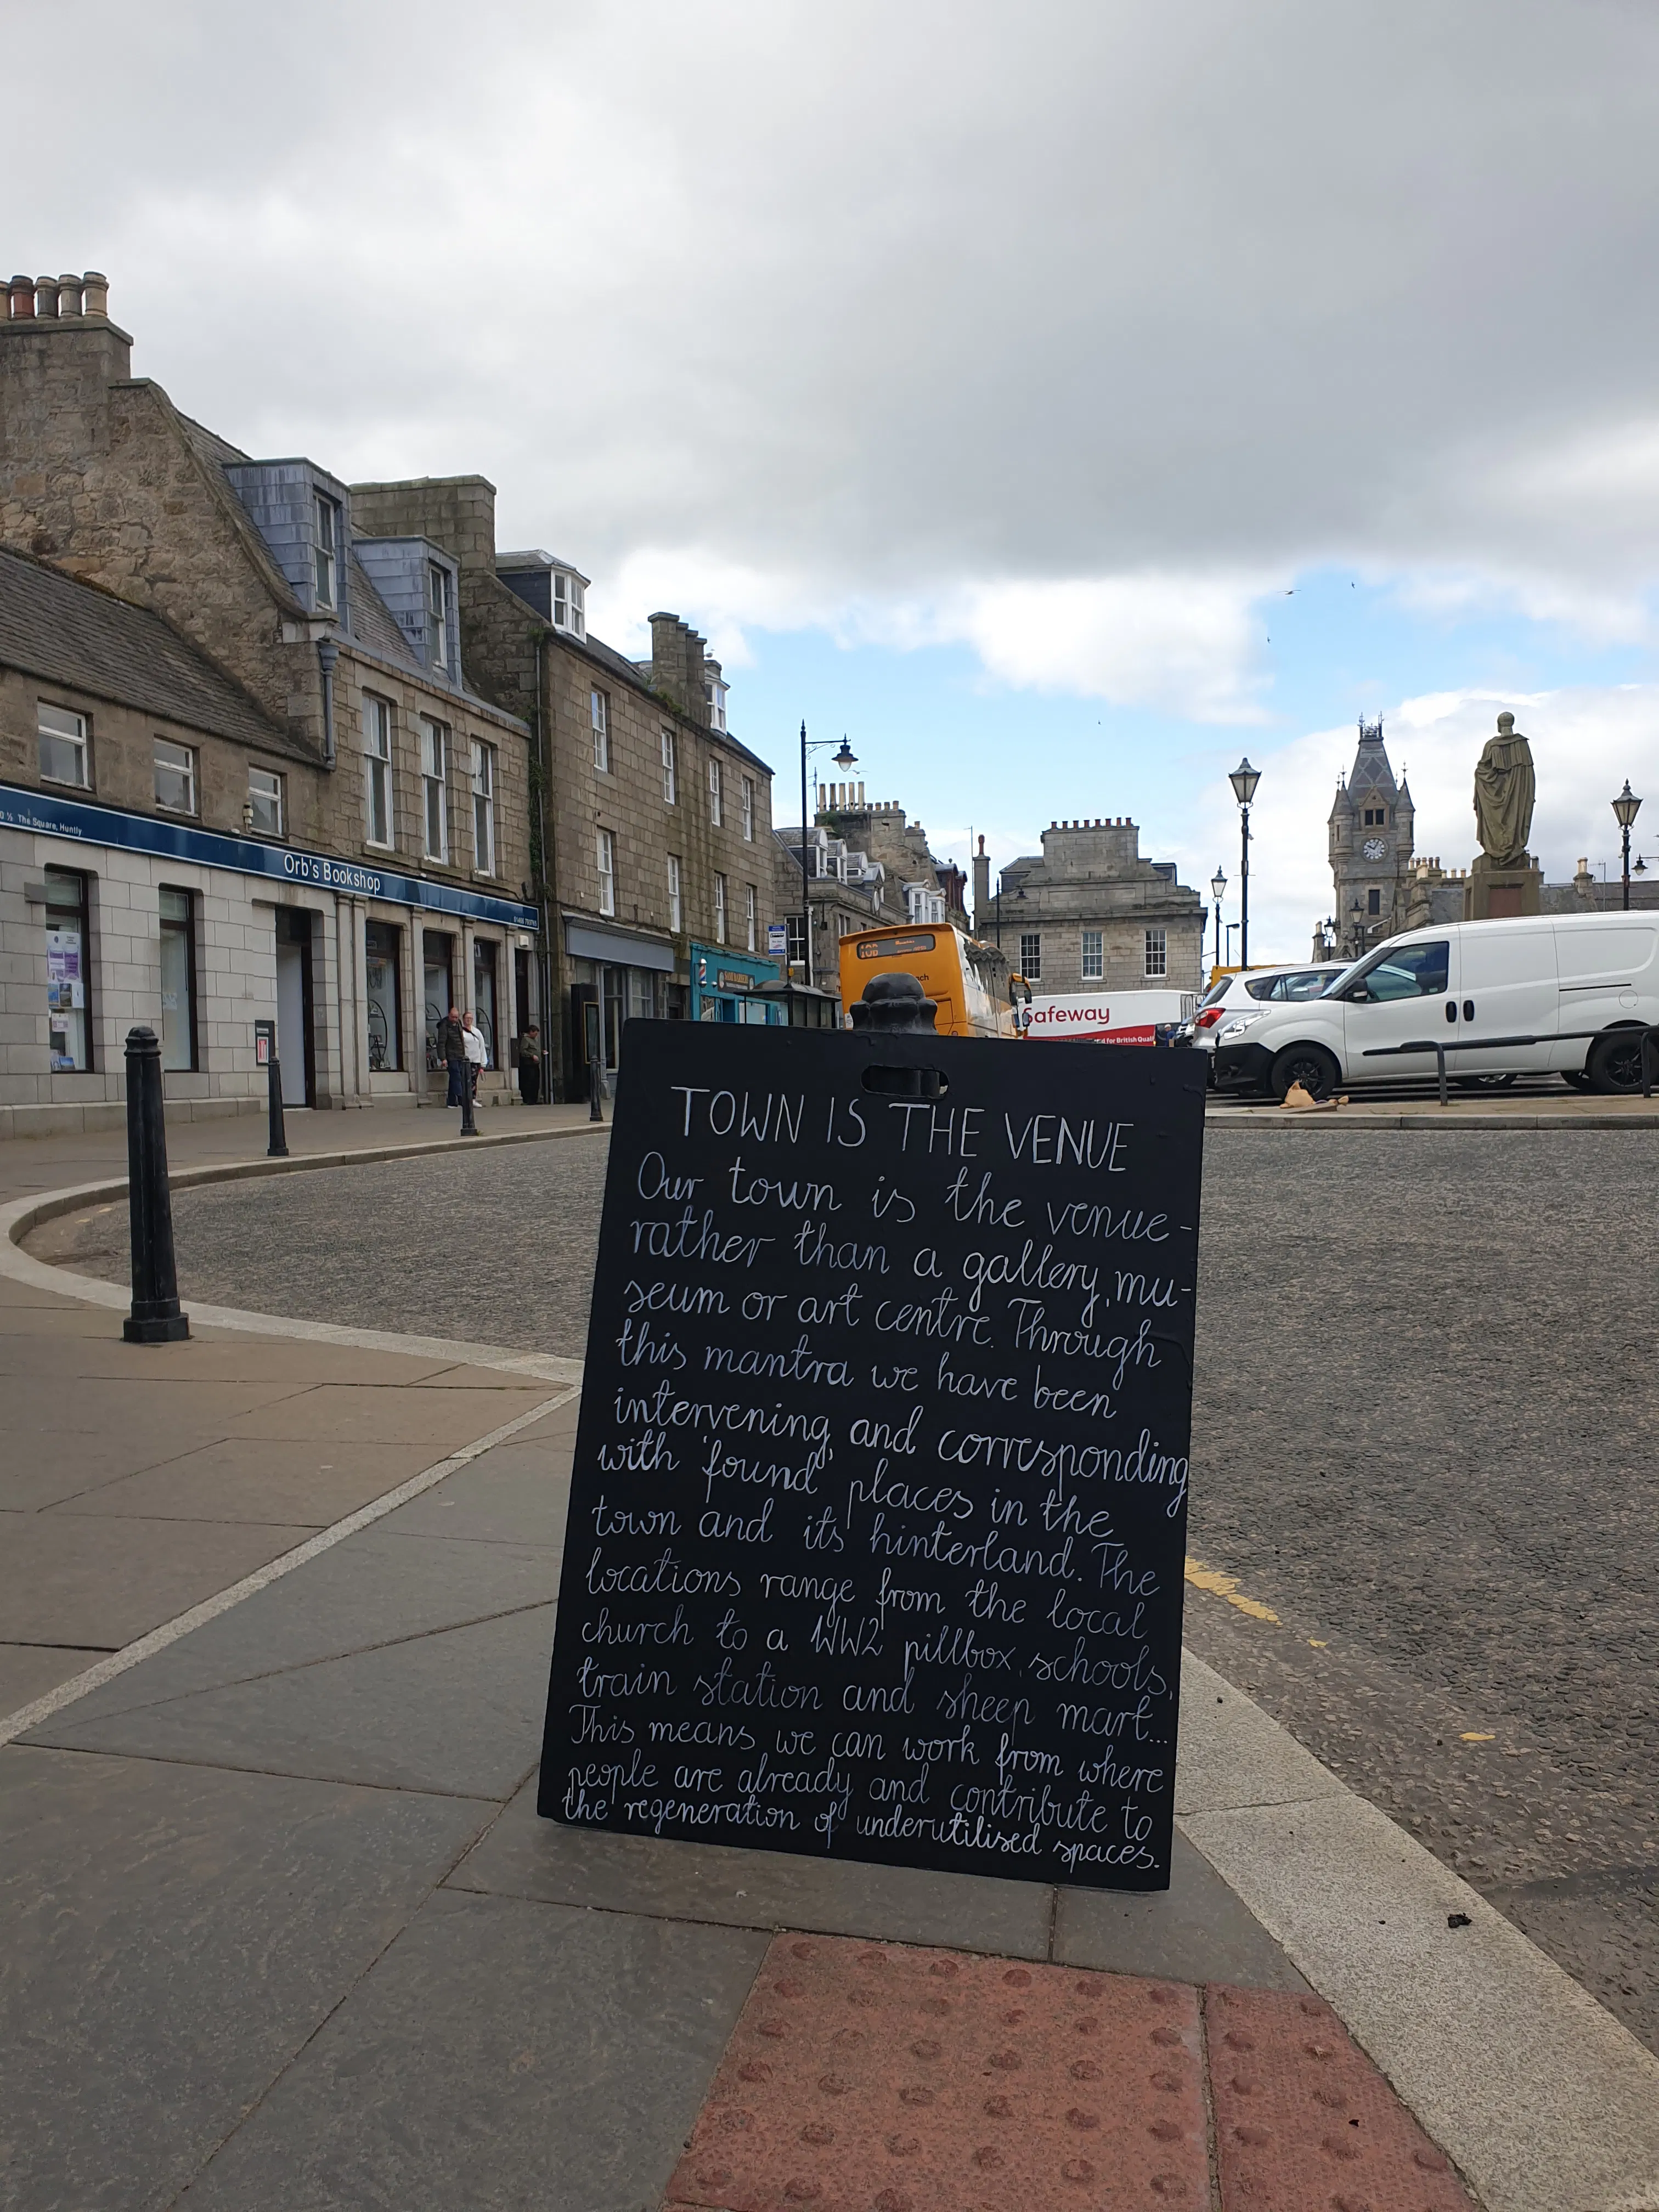 0 ½ The Square, Huntly
Orb's Bookshop
10B
Safeway
d for British Quali
TOWN IS THE VENUE
Our town is the venue-
rather than a gallery, mu-
seum or art centre. Through
this mantra we have been
intervening and corresponding
with 'found' places in the
town and its hinterland. The
locations range from the local
church to a WW2 pillbox, schools,
train station and sheep mart...
This means we can work from where
people are already and contribute to
the regeneration of underutilised spaces.